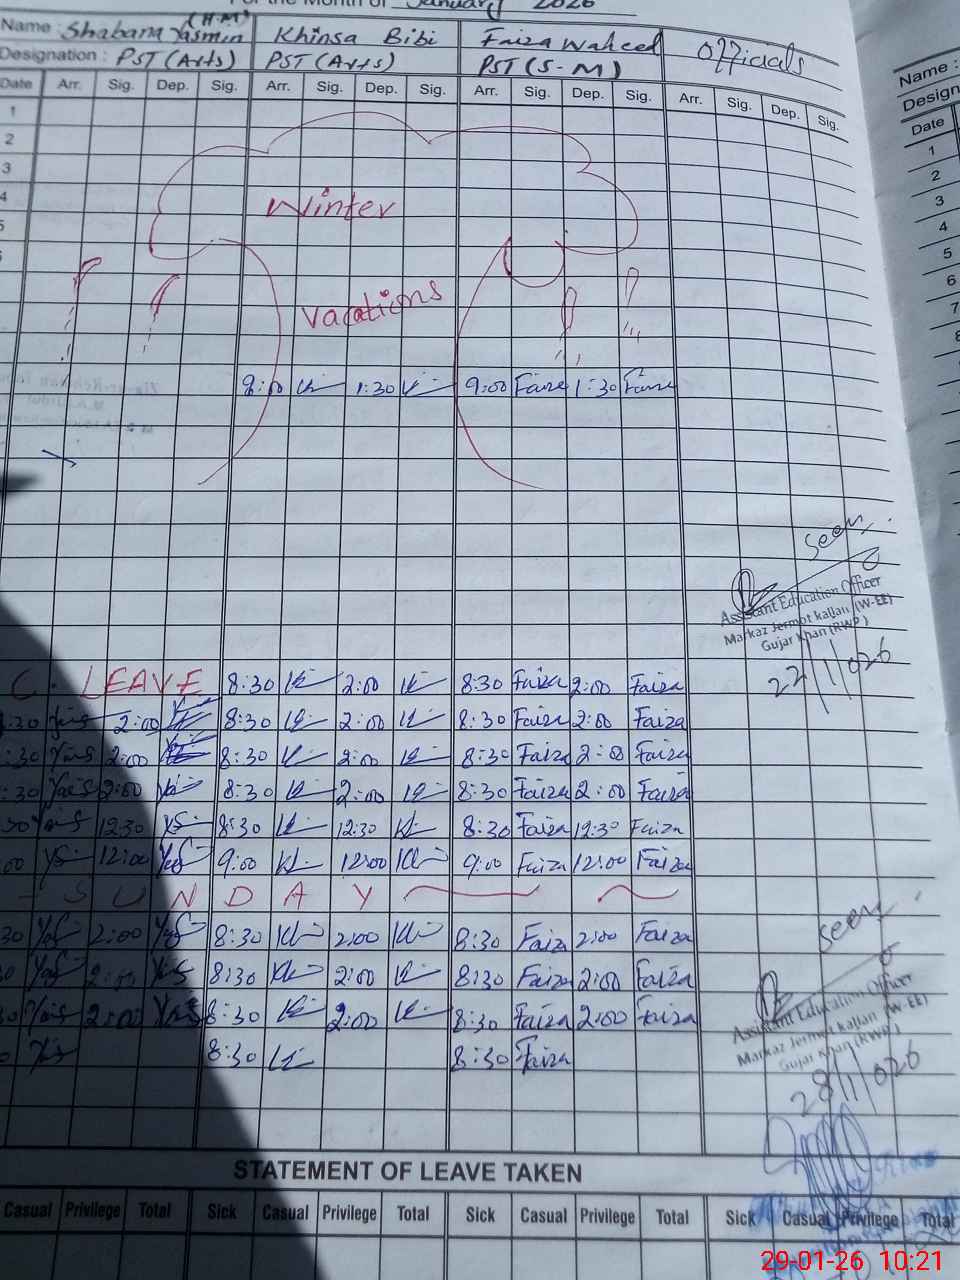 For the Month of January 2026
Name : Shabana Yasmin (H.M) Khinsa Bibi Faiza Waheed Officials
Designation : PST (Arts) PST (Arts) PST (S-M)
Date Arr. Sig. Dep. Sig. Arr. Sig. Dep. Sig. Arr. Sig. Dep. Sig. Arr. Sig. Dep. Sig.
1
2
3
4
5
6
Winter
Vacations
9:00 1:30 9:00 Faiza 1:30 Faiza
Seen
Assistant Education Officer
Markaz Jermot kallan (W-EE)
Gujar Khan (RWP)
22/1/026
C. LEAVE 8:30 2:00 8:30 Faiza 2:00 Faiza
:30 Yas 2:00 8:30 2:00 8:30 Faiza 2:00 Faiza
:30 Yas 2:00 8:30 2:00 8:30 Faiza 2:00 Faiza
:30 Yas 2:00 8:30 2:00 8:30 Faiza 2:00 Faiza
30 Yas 12:30 Yas 8:30 12:30 8:30 Faiza 12:30 Faiza
00 Yas 12:00 Yas 9:00 12:00 9:00 Faiza 12:00 Faiza
SUNDAY
30 Yas 2:00 Yas 8:30 2:00 8:30 Faiza 2:00 Faiza
0 Yas 2:00 Yas 8:30 2:00 8:30 Faiza 2:00 Faiza
0 Yas 2:00 Yas 8:30 2:00 8:30 Faiza 2:00 Faiza
0 Yas 8:30 8:30 Faiza
Seen
Assistant Education Officer
Markaz Jermot kallan (W-EE)
Gujar Khan (RWP)
28/1/026
STATEMENT OF LEAVE TAKEN
Casual Privilege Total Sick Casual Privilege Total Sick Casual Privilege Total Sick Casual Privilege Total
Name :
Design
Date
1
2
3
4
5
6
7
8
9
10
29-01-26 10:21